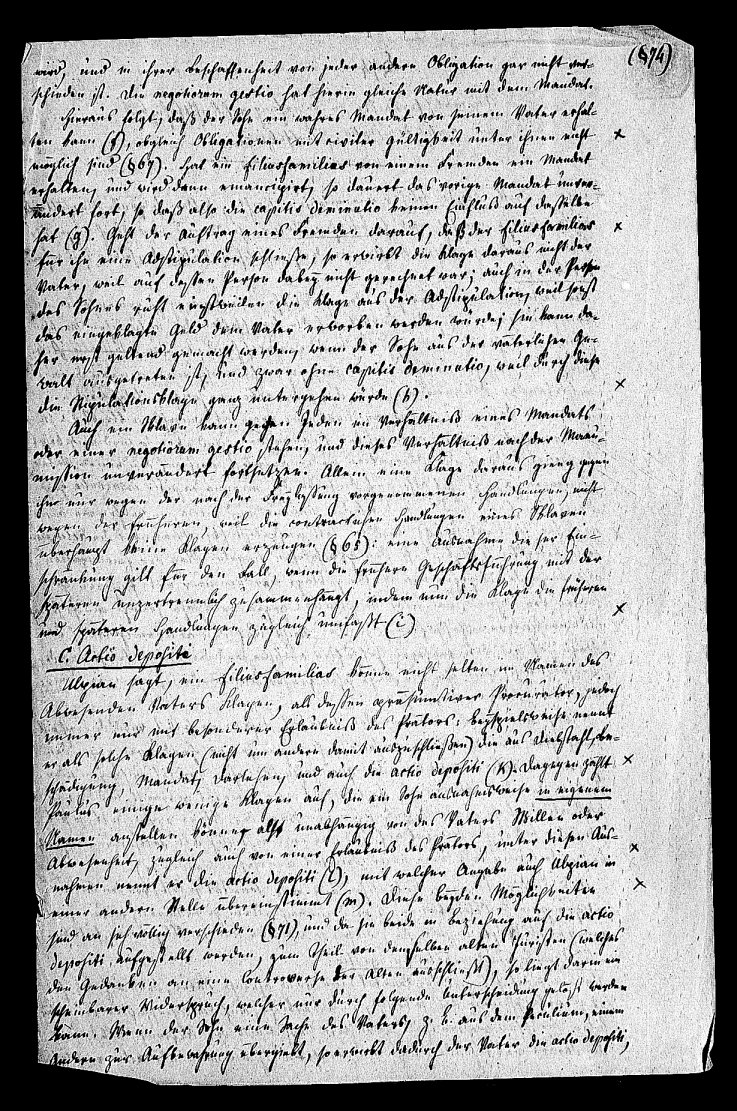 (§74)
wird, und in ihrer Beschaffenheit von jeder andern Obligation gar nicht ver-
schieden ist. Die negotiorum gestio hat hierin gleiche Natur mit dem Mandat.
Hieraus folgt, daß der Sohn ein wahres Mandat von seinem Vater erhal-
ten kann (f), obgleich Obligationen mit civiler Gültigkeit unter ihnen nicht
möglich sind (§67). Hat ein filiusfamilias von einem Fremden ein Mandat
erhalten, und wird dann emancipirt, so dauert das vorige Mandat unver-
ändert fort, so daß also die capitis deminutio keinen Einfluß auf dasselbe
hat (g). Geht der Auftrag eines Fremden darauf, daß der filiusfamilias
für ihn eine Adstipulation schließe, so erwirbt die Klage daraus nicht der
Vater, weil auf dessen Person dabey nicht gerechnet war; auch in der Person
des Sohnes ruht einstweilen die Klage aus der Adstipulation, weil sonst
das eingeklagte Geld dem Vater erworben werden würde; sie kann da-
her erst geltend gemacht werden, wenn der Sohn aus der väterlichen Ge-
walt ausgetreten ist, und zwar ohne capitis deminutio, weil durch diese
die Stipulationsklage ganz untergehen würde (h).
Auch ein Sklave kann gegen Jeden im Verhältniß eines Mandats
oder einer negotiorum gestio stehen, und dieses Verhältniß nach der Manu-
mission unverändert fortsetzen. Allein eine Klage daraus gieng gegen
ihn nur wegen der nach der Freylassung vorgenommenen Handlungen, nicht
wegen der früheren, weil die contractlichen Handlungen eines Sklaven
überhaupt keine Klagen erzeugen (§65): eine Ausnahme dieser Ein-
schränkung gilt für den Fall, wenn die frühere Geschäftsführung mit der
späteren unzertrennlich zusammenhängt, indem nun die Klage die früheren
und späteren Handlungen zugleich umfaßt (i)
C. Actio depositi
Ulpian sagt, ein filiusfamilias könne nicht selten im Namen des
Abwesenden Vaters klagen, als dessen präsumtiver Procurator, jedoch
immer nur mit besonderer Erlaubniß des Prätors: beyspielsweise nennt
er als solche Klagen (nicht um andere damit auszuschließen) die aus Diebstahl, Be-
schädigung, Mandat, Darlehen, und auch die actio depositi (k). Dagegen zählt
Paulus einige wenige Klagen auf, die ein Sohn ausnahmsweise in eigenem
Namen anstellen könne, also unabhängig von des Vaters Willen oder
Abwesenheit, zugleich auch von einer Erlaubniß des Prätors, unter diesen Aus-
nahmen nennt er die actio depositi (l), mit welcher Angabe auch Ulpian in
einer andern Stelle übereinstimmt (m). Diese beyden Möglichkeiten
sind an sich völlig verschieden (§71), und da sie beide in Beziehung auf die actio
depositi aufgestellt werden, zum Theil von demselben alten Juristen (welches
den Gedanken an eine Controverse der Alten ausschließt), so liegt darin ein
scheinbarer Widerspruch, welcher nur durch folgende Unterscheidung gelöst werden
kann. Wenn der Sohn eine Sache des Vaters, z. B. aus dem Peculium, einem
Andern zur Aufbewahrung übergiebt, so erwirbt dadurch der Vater die actio depositi,